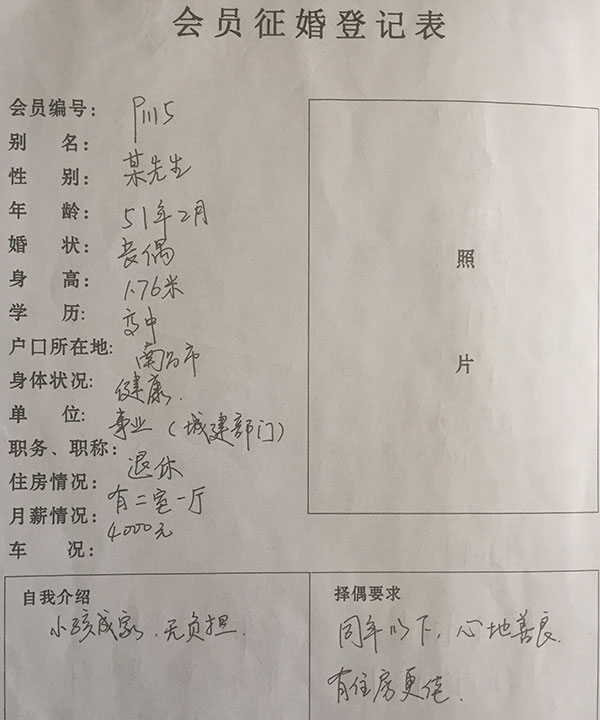 会员征婚登记表
会员编号： P1115
别 名： 某先生
性 别：
年 龄： 51年2月
婚 状： 丧偶
身 高： 1.76米
学 历： 高中
户口所在地： 南昌市
身体状况： 健康.
单 位： 事业（城建部门）
职务、职称： 退休
住房情况： 有二室一厅
月薪情况： 4000元
车 况：
照
片
自我介绍
小孩成家、无负担.
择偶要求
同年以下，心地善良.
有住房更佳.